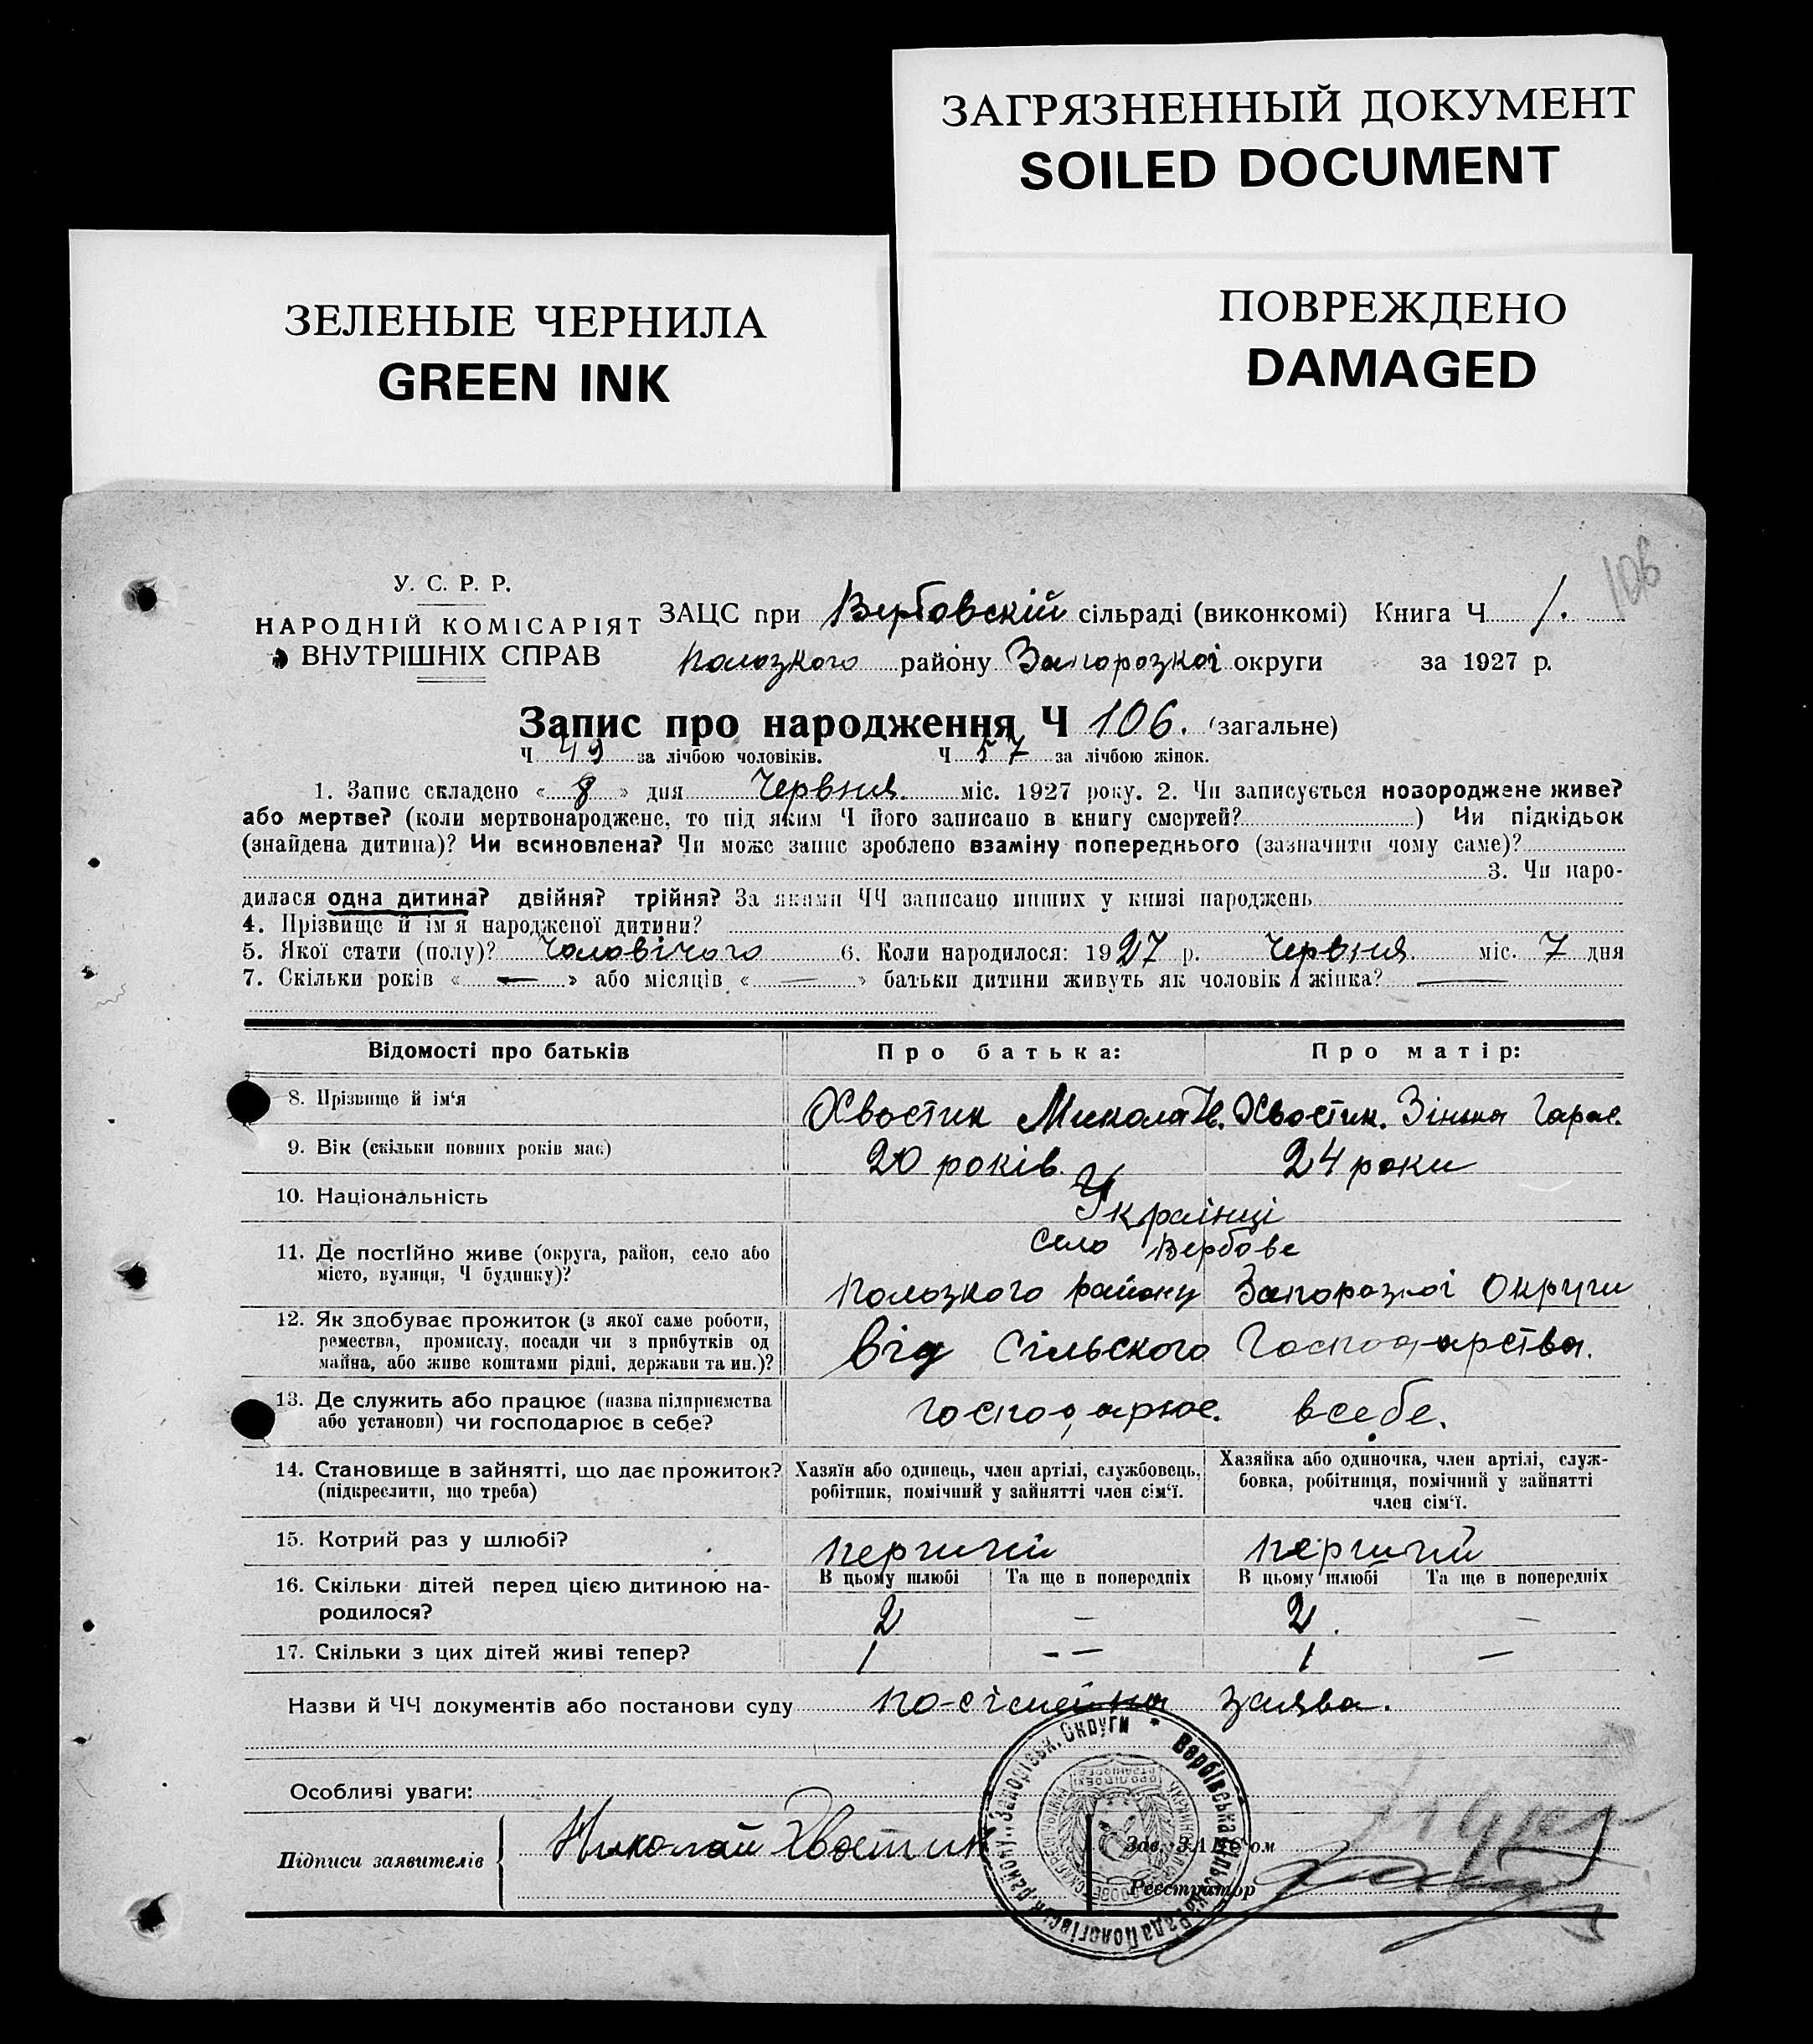 ЗАГРЯЗНЕННЫЙ ДОКУМЕНТ
SOILED DOCUMENT
ЗЕЛЕНЫЕ ЧЕРНИЛА
GREEN INK
ПОВРЕЖДЕНО
DAMAGED
106
У. С. Р. Р.
НАРОДНІЙ КОМІСАРІЯТ
ВНУТРІШНІХ СПРАВ
ЗАЦС при Вербовскій сільраді (виконкомі) Книга Ч 1.
Полозкого району Запорозкої округи за 1927 р.
Запис про народження Ч 106. (загальне)
Ч 49 за лічбою чоловіків. Ч 57 за лічбою жінок.
1. Запис складено « 8 » дня Червня міс. 1927 року. 2. Чи записується новороджене живе?
або мертве? (коли мертвонароджене, то під яким Ч його записано в книгу смертей? ) Чи підкідьок
(знайдена дитина)? Чи всиновлена? Чи може запис зроблено взаміну попереднього (зазначити чому саме)?
3. Чи наро-
дилася одна дитина? двійня? трійня? За якими ЧЧ записано инших у книзі народжень
4. Прізвище й ім'я народженої дитини?
5. Якої стати (полу)? Чоловічого 6. Коли народилося: 1927 р. Червня міс. 7 дня
7. Скільки років « — » або місяців « — » батьки дитини живуть як чоловік і жінка? —
Відомості про батьків Про батька: Про матір:
8. Прізвище й ім'я Хвостик Микола Н. Хвостик. Зінька Гарас.
9. Вік (скільки повних років має) 20 років. 24 роки
10. Національність Українці
11. Де постійно живе (округа, район, село або
місто, вулиця, Ч будинку)?
село Вербове
Полозкого району Запорозкої Округи
12. Як здобуває прожиток (з якої саме роботи,
ремества, промислу, посади чи з прибутків од
майна, або живе коштами рідні, держави та ин.)?
від Сільського Господарства.
13. Де служить або працює (назва підприємства
або установи) чи господарює в себе?
господарює. всебе.
14. Становище в зайнятті, що дає прожиток?
(підкреслити, що треба)
Хазяїн або одинець, член артілі, службовець,
робітник, помічний у зайнятті член сім'ї.
Хазяйка або одиночка, член артілі, служ-
бовка, робітниця, помічний у зайнятті
член сім'ї.
15. Котрий раз у шлюбі? перший перший
16. Скільки дітей перед цією дитиною на-
родилося?
В цьому шлюбі Та ще в попередніх В цьому шлюбі Та ще в попередніх
2 — 2. —
17. Скільки з цих дітей живі тепер? 1 — — 1 —
Назви й ЧЧ документів або постанови суду по-сімейна заява.
Особливі уваги:
Підписи заявителів Николай Хвостик
Зав. ЗАЦС'ом
Реєстратор
Вербівська Сільська Рада Пологівськ. району, Запорізьк. Округи